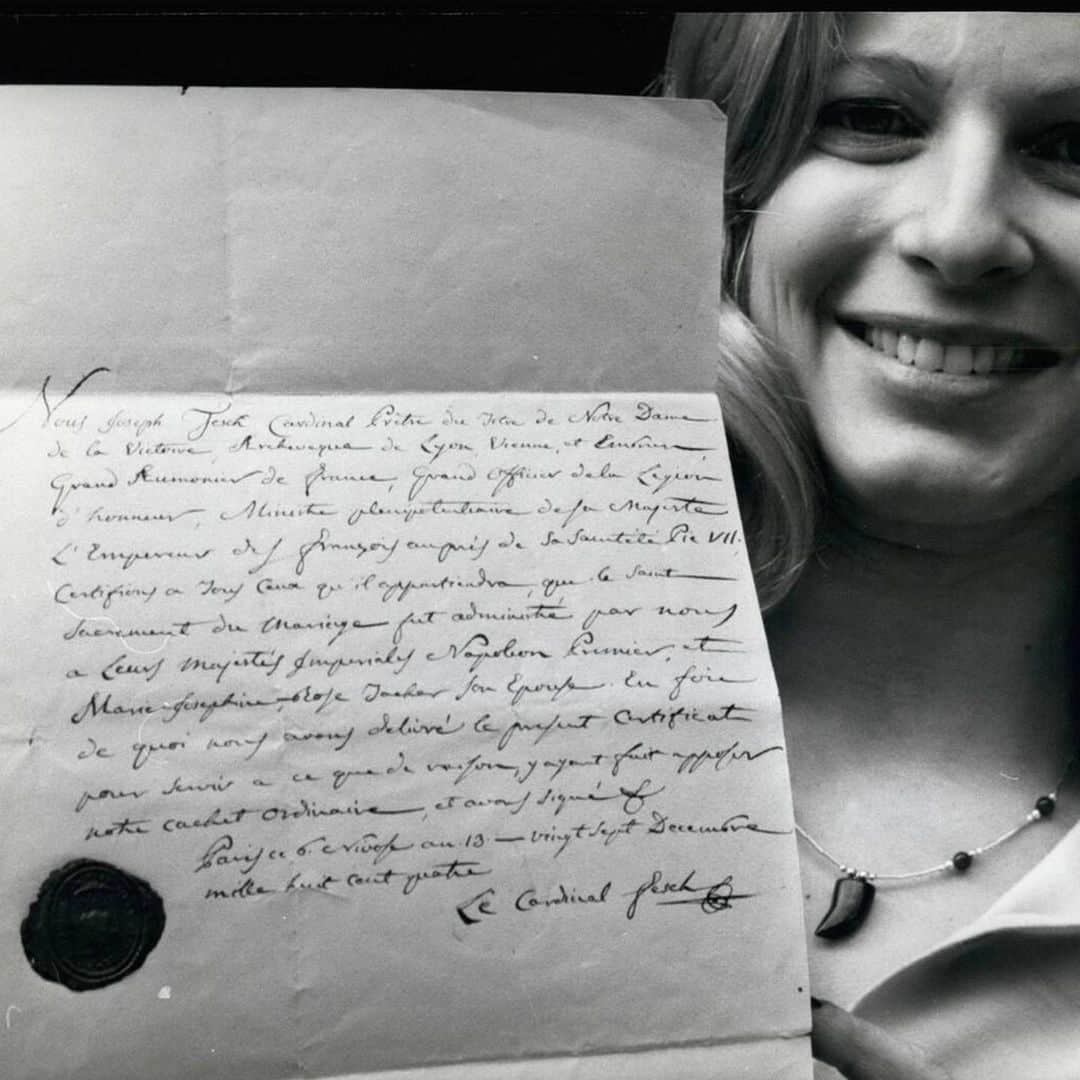 Nous Joseph Fesch Cardinal Prêtre du Titre de Notre Dame
de la Victoire, Archeveque de Lyon, Vienne, et Embrun,
Grand Aumonier de France, Grand Officier de la Legion
d'honneur, Ministre plenipotentiaire de sa Majesté
L'Empereur des françois auprès de Sa Sainteté Pie VII,
Certifions a Tous Ceux qu'il appartiendra, que le Saint
Sacrement du Mariage fut administré par nous
a Leurs Majestés Imperiales Napoleon Premier, et
Marie Josephine Rose Tacher Son Epouse. En foie
de quoi nous avons délivré le present Certificat
pour servir a ce que de raison, y ayant fait apposer
notre cachet ordinaire, et avons signé
Paris ce 6. Nivôse an 13 — vingt sept Decembre
mille huit cent quatre
Le Cardinal Fesch